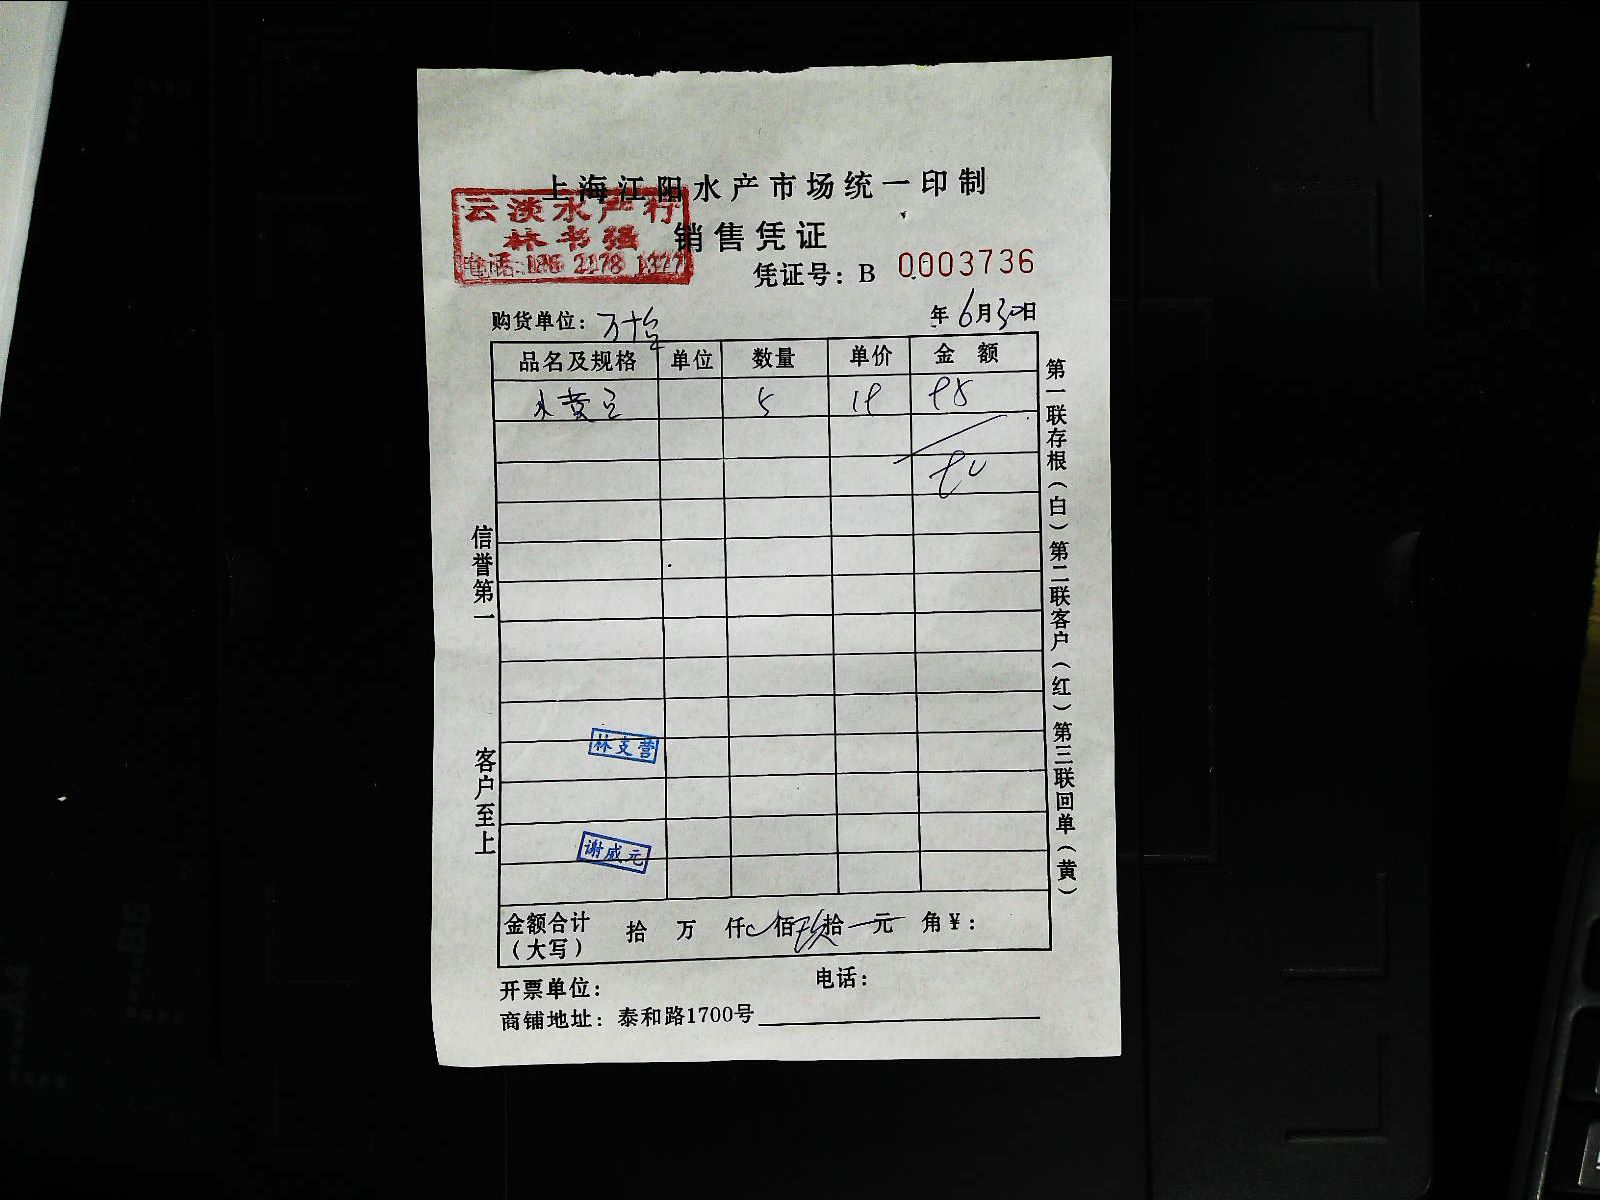 上海江阳水产市场统一印制
云淡水产行
林书强
销售凭证
凭证号：B 0003736
购货单位：万十
年 6月30日
品名及规格 单位 数量 单价 金 额
水黄豆 5 19 95
90
信誉第一
客户至上
第一联存根（白）第二联客户（红）第三联回单（黄）
林支营
谢成元
金额合计（大写） 拾 万 仟 佰 玖 拾 元 角 ¥：
开票单位： 电话：
商铺地址：泰和路1700号